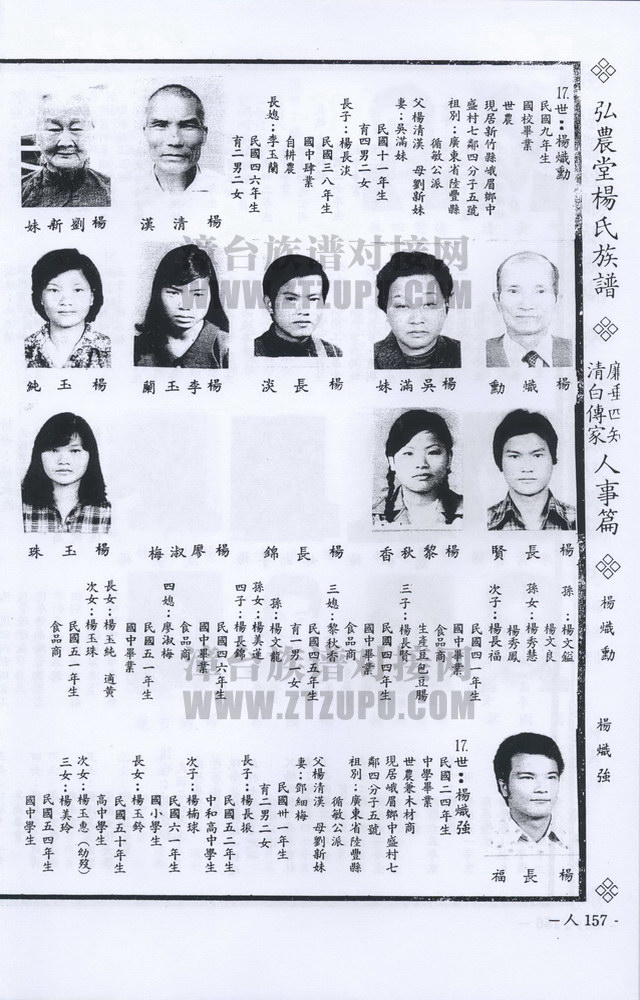 弘農堂楊氏族譜
廉垂四知
清白傳家
人事篇
楊熾勳
楊熾強
17.世：楊熾勳
民國九年生
國校畢業
世農
現居新竹縣峨眉鄉中
盛村七鄰四分子五號
祖別：廣東省陸豐縣
循敏公派
父楊清漢　母劉新妹
妻：吳滿妹
民國十一年生
育四男二女
長子：楊長淡
民國三八年生
國中肄業
自耕農
長媳：李玉蘭
民國四六年生
育二男二女
楊清漢
楊劉新妹
楊熾勳
楊吳滿妹
楊長淡
楊李玉蘭
楊玉純
楊長賢
楊黎秋香
楊長錦
楊廖淑梅
楊玉珠
孫：楊文鎰
楊文良
孫女：楊秀慧
楊秀鳳
次子：楊長福
民國四一年生
國中畢業
食品商
生產豆包豆腸
三子：楊長賢
民國四四年生
國中畢業
食品商
三媳：黎秋香
民國四五年生
育一男一女
孫：楊文龍
孫女：楊美蓮
四子：楊長錦
民國四六年生
國中畢業
食品商
四媳：廖淑梅
民國五一年生
國中畢業
長女：楊玉純　適黃
次女：楊玉珠
民國五一年生
食品商
楊長福
17.世：楊熾強
民國二四年生
中學畢業
世農兼木材商
現居峨眉鄉中盛村七
鄰四分子五號
祖別：廣東省陸豐縣
循敏公派
父楊清漢　母劉新妹
妻：鄧細梅
民國卅一年生
育二男二女
長子：楊長振
民國五二年生
中和高中學生
次子：楊楠球
民國六一年生
國小學生
長女：楊玉鈴
民國五十年生
高中學生
次女：楊玉惠（幼歿）
三女：楊美玲
民國五四年生
國中學生
－人 157－
漳台族谱对接网
WWW.ZTZUPU.COM
漳台族谱对接网
WWW.ZTZUPU.COM